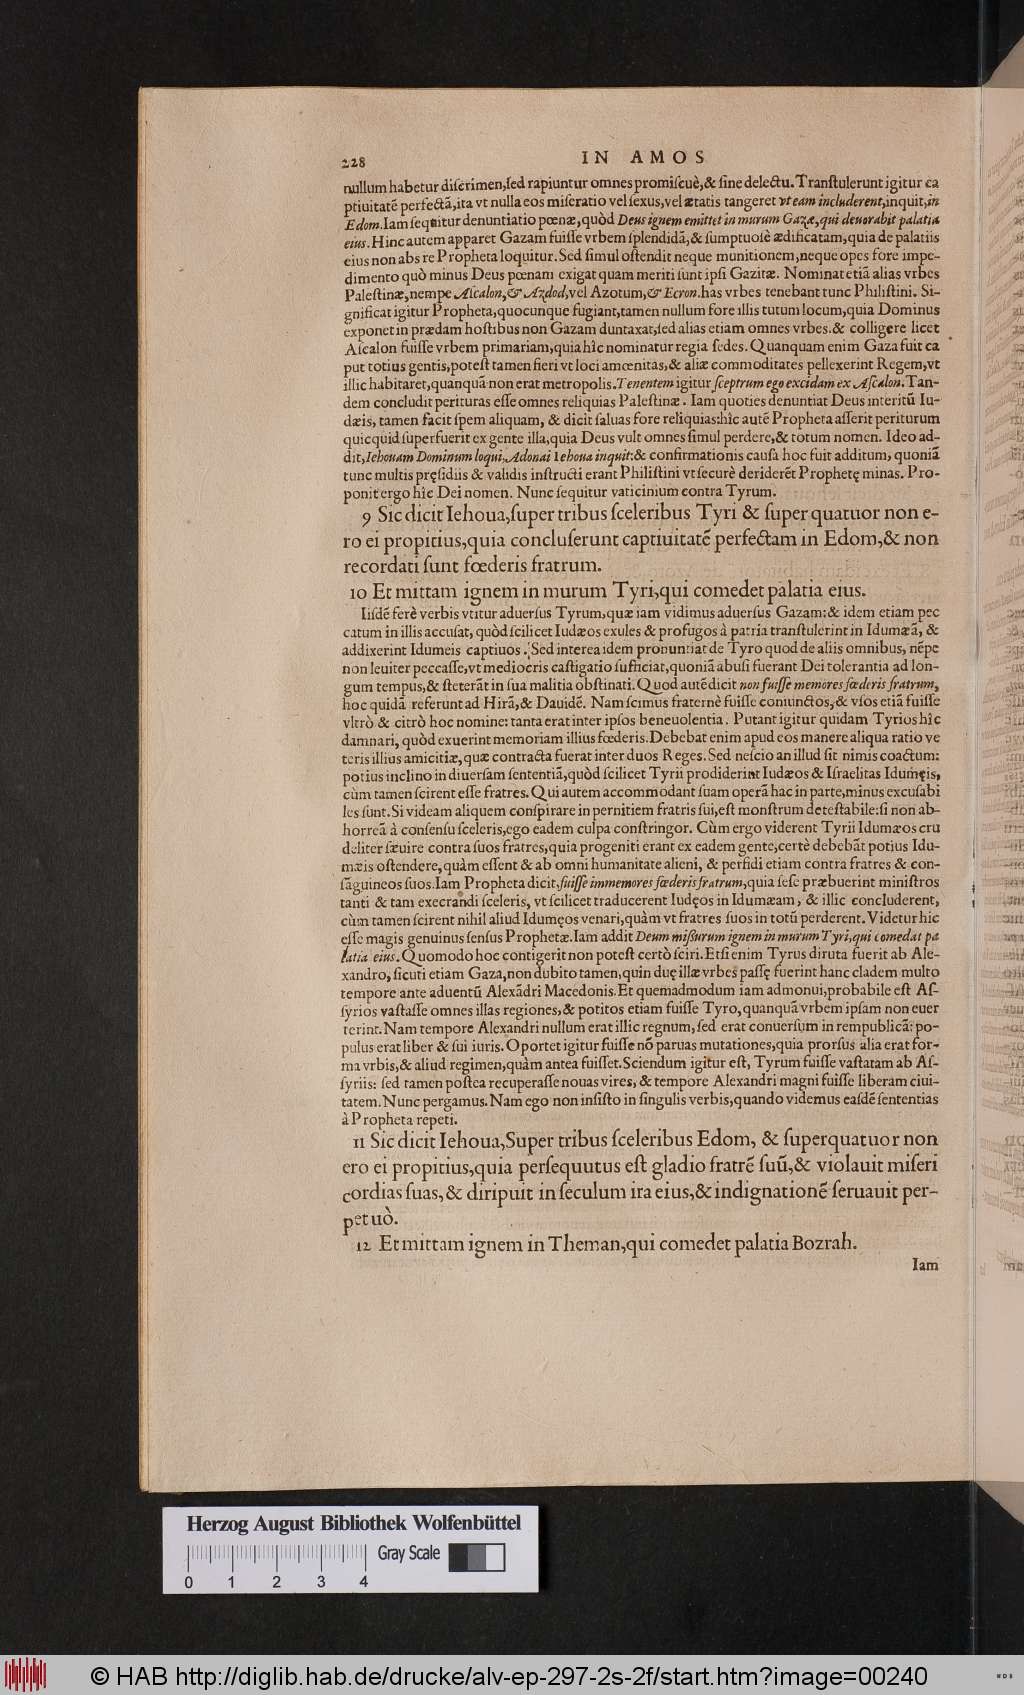 228 IN AMOS
nullum habetur diſcrimen,ſed rapiuntur omnes promiſcuè,& ſine delectu. Tranſtulerunt igitur ca
ptiuitatē perfectã,ita vt nulla eos miſeratio vel ſexus,vel ætatis tangeret vt eam includerent,inquit,in
Edom.Iam ſequitur denuntiatio pœnæ,quòd Deus ignem emittet in murum Gazæ, qui deuorabit palatia
eius. Hinc autem apparet Gazam fuiſſe vrbem ſplendidã,& ſumptuoſè ædificatam,quia de palatiis
eius non abs re Propheta loquitur. Sed ſimul oſtendit neque munitionem,neque opes fore impe-
dimento quò minus Deus pœnam exigat quam meriti ſunt ipſi Gazitæ. Nominat etiã alias vrbes
Paleſtinæ,nempe Aſcalon,& Azdod,vel Azotum,& Ecron.has vrbes tenebant tunc Philiſtini. Si-
gnificat igitur Propheta,quocunque fugiant,tamen nullum fore illis tutum locum,quia Dominus
exponet in prædam hoſtibus non Gazam duntaxat,ſed alias etiam omnes vrbes.& colligere licet
Aſcalon fuiſſe vrbem primariam,quia hîc nominatur regia ſedes. Quanquam enim Gaza fuit ca
put totius gentis,poteſt tamen fieri vt loci amœnitas,& aliæ commoditates pellexerint Regem,vt
illic habitaret,quanquã non erat metropolis.Tenentem igitur ſceptrum ego excidam ex Aſcalon.Tan-
dem concludit perituras eſſe omnes reliquias Paleſtinæ. Iam quoties denuntiat Deus interitũ Iu-
dæis, tamen facit ſpem aliquam, & dicit ſaluas fore reliquias:hîc autē Propheta aſſerit periturum
quicquid ſuperfuerit ex gente illa,quia Deus vult omnes ſimul perdere,& totum nomen. Ideo ad-
dit,Iehouam Dominum loqui, Adonai Iehoua inquit:& confirmationis cauſa hoc fuit additum, quoniã
tunc multis pręſidiis & validis inſtructi erant Philiſtini vt ſecurè deriderēt Prophetę minas. Pro-
ponit ergo hîc Dei nomen. Nunc ſequitur vaticinium contra Tyrum.
9 Sic dicit Iehoua,ſuper tribus ſceleribus Tyri & ſuper quatuor non e-
ro ei propitius,quia concluſerunt captiuitatē perfectam in Edom,& non
recordati ſunt fœderis fratrum.
10 Et mittam ignem in murum Tyri,qui comedet palatia eius.
Iiſdē ferè verbis vtitur aduerſus Tyrum,quæ iam vidimus aduerſus Gazam:& idem etiam pec
catum in illis accuſat, quòd ſcilicet Iudæos exules & profugos à patria tranſtulerint in Idumæã, &
addixerint Idumeis captiuos. Sed interea idem pronuntiat de Tyro quod de aliis omnibus, nēpe
non leuiter peccaſſe,vt mediocris caſtigatio ſufficiat,quoniã abuſi fuerant Dei tolerantia ad lon-
gum tempus,& ſteterãt in ſua malitia obſtinati. Quod autē dicit non fuiſſe memores fœderis fratrum,
hoc quidã referunt ad Hirã,& Dauidē. Nam ſcimus fraternè fuiſſe coniunctos,& vſos etiã fuiſſe
vltrò & citrò hoc nomine: tanta erat inter ipſos beneuolentia. Putant igitur quidam Tyrios hîc
damnari, quòd exuerint memoriam illius fœderis.Debebat enim apud eos manere aliqua ratio ve
teris illius amicitiæ,quæ contracta fuerat inter duos Reges.Sed neſcio an illud ſit nimis coactum:
potius inclino in diuerſam ſententiã,quòd ſcilicet Tyrii prodiderint Iudæos & Iſraelitas Idumęis,
cùm tamen ſcirent eſſe fratres. Qui autem accommodant ſuam operã hac in parte,minus excuſabi
les ſunt.Si videam aliquem conſpirare in pernitiem fratris ſui,eſt monſtrum deteſtabile:ſi non ab-
horreã à conſenſu ſceleris,ego eadem culpa conſtringor. Cùm ergo viderent Tyrii Idumæos cru
deliter ſæuire contra ſuos fratres,quia progeniti erant ex eadem gente,certè debebãt potius Idu-
mæis oſtendere,quàm eſſent & ab omni humanitate alieni, & perfidi etiam contra fratres & con-
ſãguineos ſuos.Iam Propheta dicit,fuiſſe immemores fœderis fratrum,quia ſeſe præbuerint miniſtros
tanti & tam execrandi ſceleris, vt ſcilicet traducerent Iudęos in Idumæam, & illic concluderent,
cùm tamen ſcirent nihil aliud Idumęos venari,quàm vt fratres ſuos in totũ perderent. Videtur hic
eſſe magis genuinus ſenſus Prophetæ.Iam addit Deum miſſurum ignem in murum Tyri,qui comedat pa
latia eius. Quomodo hoc contigerit non poteſt certò ſciri.Etſi enim Tyrus diruta fuerit ab Ale-
xandro, ſicuti etiam Gaza,non dubito tamen,quin duę illæ vrbes paſſę fuerint hanc cladem multo
tempore ante aduentũ Alexãdri Macedonis.Et quemadmodum iam admonui,probabile eſt Aſ-
ſyrios vaſtaſſe omnes illas regiones,& potitos etiam fuiſſe Tyro,quanquã vrbem ipſam non euer
terint. Nam tempore Alexandri nullum erat illic regnum,ſed erat conuerſum in rempublicã: po-
pulus erat liber & ſui iuris. Oportet igitur fuiſſe nõ paruas mutationes,quia prorſus alia erat for-
ma vrbis,& aliud regimen,quàm antea fuiſſet.Sciendum igitur eſt, Tyrum fuiſſe vaſtatam ab Aſ-
ſyriis: ſed tamen poſtea recuperaſſe nouas vires, & tempore Alexandri magni fuiſſe liberam ciui-
tatem. Nunc pergamus. Nam ego non inſiſto in ſingulis verbis,quando videmus eaſdē ſententias
à Propheta repeti.
11 Sic dicit Iehoua,Super tribus ſceleribus Edom, & ſuperquatuor non
ero ei propitius,quia perſequutus eſt gladio fratrē ſuũ,& violauit miſeri
cordias ſuas,& diripuit in ſeculum ira eius,& indignationē ſeruauit per-
petuò.
12 Et mittam ignem in Theman,qui comedet palatia Bozrah.
Iam
Herzog August Bibliothek Wolfenbüttel
Gray Scale
0 1 2 3 4
© HAB http://diglib.hab.de/drucke/alv-ep-297-2s-2f/start.htm?image=00240